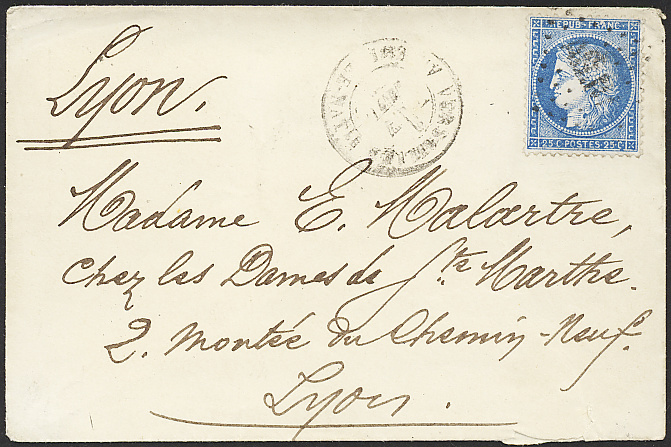 Lyon.
REPUB. FRANC.
25 C. POSTES 25 C.
Madame E. Malartre,
Chez les Dames de Ste Marthe.
2. Montée du Chemin-Neuf.
Lyon.